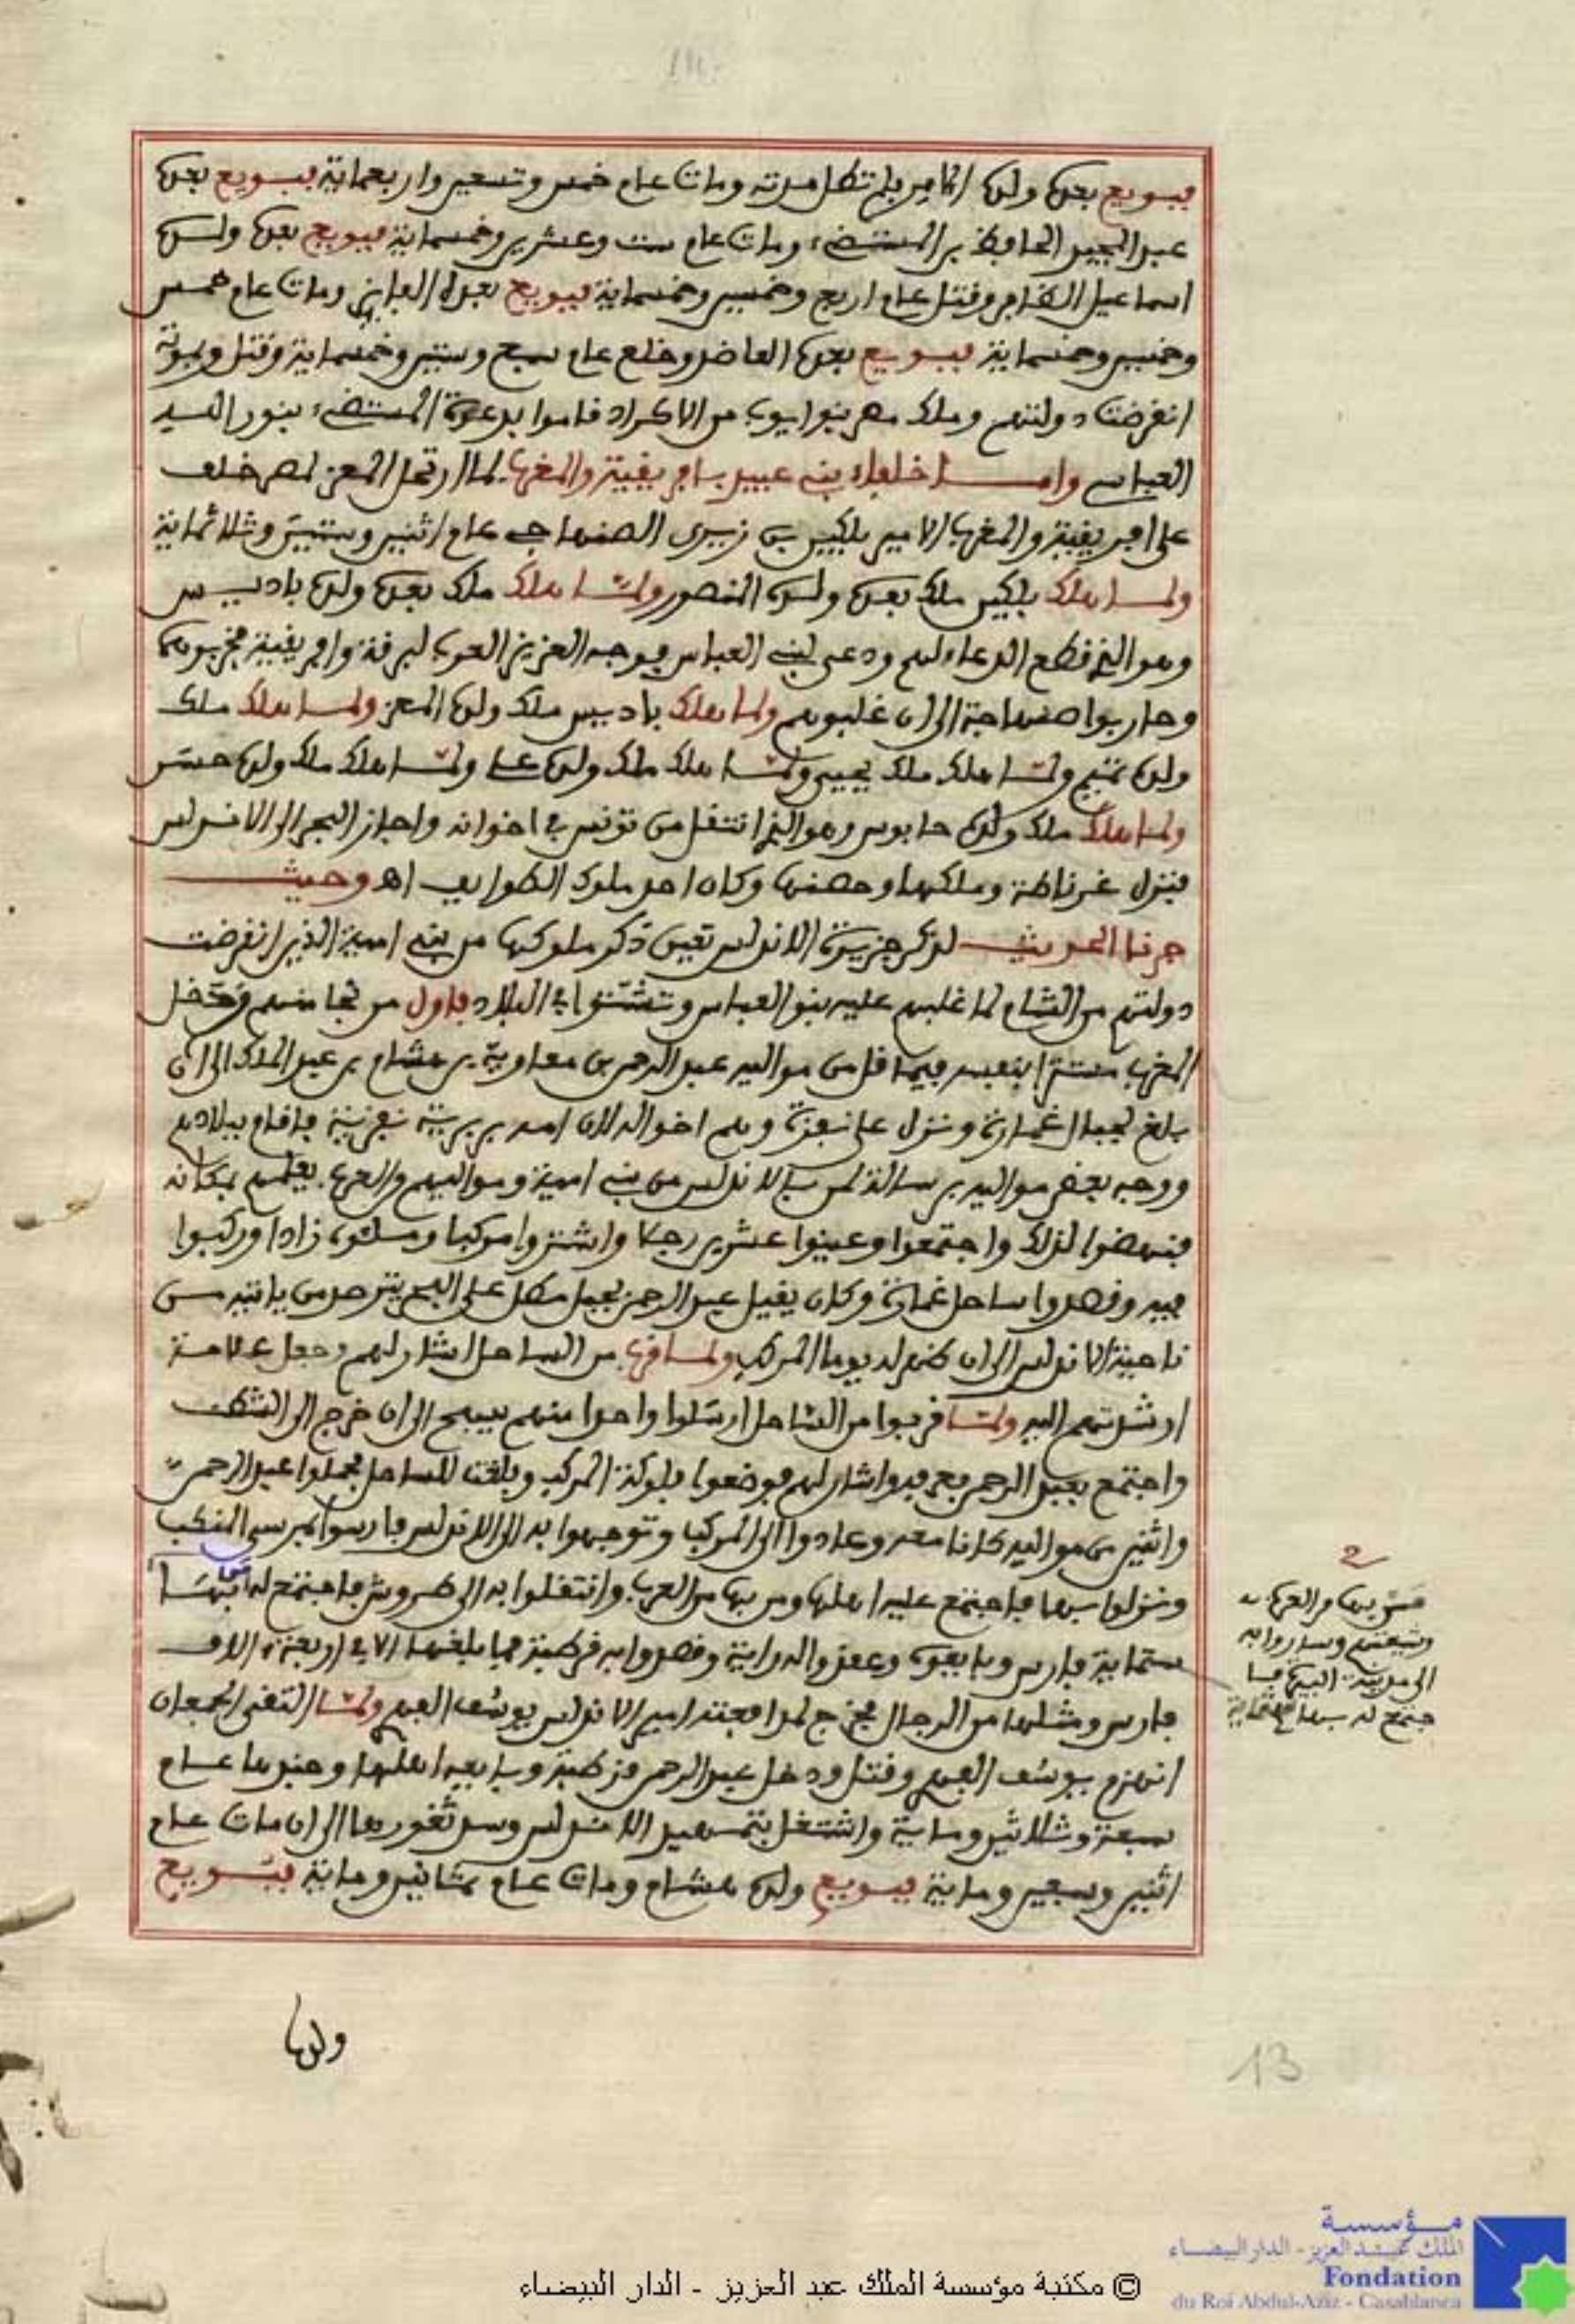 فبويع بعده ولده الآمر فلم تطل مدته ومات عام خمس وتسعين واربعماية فبويع بعده
عبد المجيد الحافظ بن المستضيء ومات عام ست وعشرين وخمسماية فبويع بعده ولده
اسماعيل الظافر وقتل عام اربع وخمسين وخمسماية فبويع بعده الفايز ومات عام خمس
وخمسين وخمسماية فبويع بعده العاضد وخلع عام سبع وستين وخمسماية وقتل وبموته
انقرضت دولتهم وملك مصر بنوا ايوب من الاكراد قاموا بدعوة المستضيء بنور الله
العباسي واما خلفاء بني عبيد بافريقية والمغرب لما ارتحل المعز لمصر خلف
على افريقية والمغرب الامير بلكين بن زيري الصنهاجي عام اثنين وستين وثلاثماية
ولما هلك بلكين ملك بعده ولده المنصور ولما هلك ملك بعده ولده باديس
وهو الذي قطع الدعاء لهم ودعى لبني العباس فوجه العزيز العرب لبرقة وافريقية فخربوهما
وحاربوا صنهاجة الى ان غلبوهم ولما هلك باديس ملك ولده المعز ولما هلك ملك
ولده تميم ولما هلك ملك يحيى ولما هلك ملك ولده علي ولما هلك ملك ولده حسن
ولما هلك ملك ولده حابوس وهو الذي انتقل من تونس في اخوانه واجاز البحر الى الاندلس
فنزل غرناطة وملكها وحصنها وكان احد ملوك الطوايف اهـ وحيث
جرنا الحديث لذكر جزيرة الاندلس تعين ذكر ملوكها من بني امية الذين انقرضت
دولتهم من الشام لما غلبهم عليه بنو العباس وتشتتوا في البلاد فاول من نجا منهم ودخل
المغرب مستترا بنفسه فيما قل من مواليه عبد الرحمن بن معاوية بن هشام بن عبد الملك الى ان
بلغ لجبال غمارة ونزل على نفزة وهم اخواله لان امه بربرية نفزية فاقام ببلادهم
ووجه بعض مواليه برسالة لمن بالاندلس من بني امية ومواليهم والعرب يعلمهم بمكانه
فنهضوا لذلك واجتمعوا وعينوا عشرين رجلا واشتروا مركبا وملئوه زادا وركبوا
فيه وقصدوا ساحل غمارة وكان يقيل عبد الرحمن بجبل مطل على البحر يترصد من ياتيه من
ناحية الاندلس الى ان ظهر له يوما المركب ولما قرب من الساحل اشار لهم وجعل علامة
ارشدتهم اليه ولما قربوا من الساحل ارسلوا واحدا منهم يسبح الى ان خرج الى الشط
واجتمع بعبد الرحمن فعرفه واشار لهم فوضعوا فلوكة المركب وبلغت للساحل فحملوا عبد الرحمن
واثنين من مواليه كانا معه وعادوا الى المركب وتوجهوا به الى الاندلس فارسوا بمرسى المنكب
ونزلوا بها فاجتمع عليه اهلها ومن بها من العرب وانتقلوا به الى طروش فاجتمع له بها
ستماية فارس وبايعوه وعقدوا له الراية وقصدوا به قرطبة فما بلغها الا في اربعة الاف
فارس ومثلها من الرجال فخرج لمدافعته امير الاندلس يوسف الفهري ولما التقى الجمعان
انهزم يوسف الفهري وقتل ودخل عبد الرحمن قرطبة وبايعه اهلها وجنودها عام
سبعة وثلاثين وماية واشتغل بتمهيد الاندلس وسد ثغورها الى ان مات عام
اثنين وسبعين وماية فبويع ولده هشام ومات عام ثمانين وماية فبويع
ولده
من بها من العرب
وشيعتهم وساروا به
الى مدينة
جتمع له بها
13
مؤسسة
الملك عبد العزيز - الدار البيضاء
Fondation
du Roi Abdul-Aziz - Casablanca
© مكتبة مؤسسة الملك عبد العزيز - الدار البيضاء